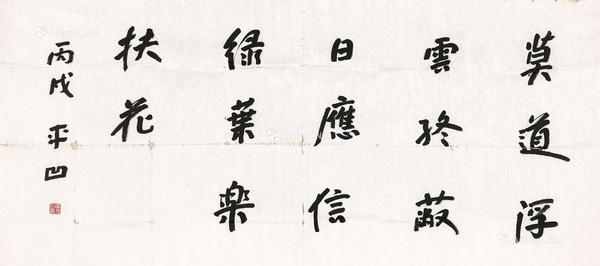 莫道浮
雲終蔽
日應信
緑葉楽
扶花
丙戌 平凹